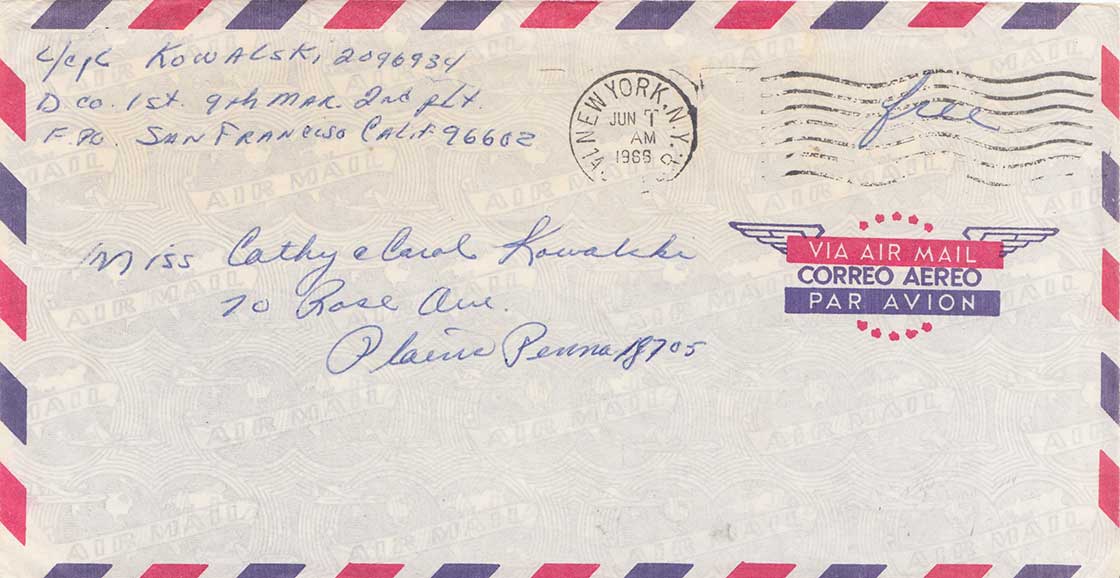 L/cpl Kowalski, 2096934
D co. 1st. 9th Mar. 2nd plt.
F.PO. San Franciso Calif 96602
NEW YORK, N.Y.
JUN
AM
free
VIA AIR MAIL
CORREO AEREO
PAR AVION
Miss Cathy & Carol Kowalski
70 Rose Ave.
Plains Penna 18705
AIR MAIL